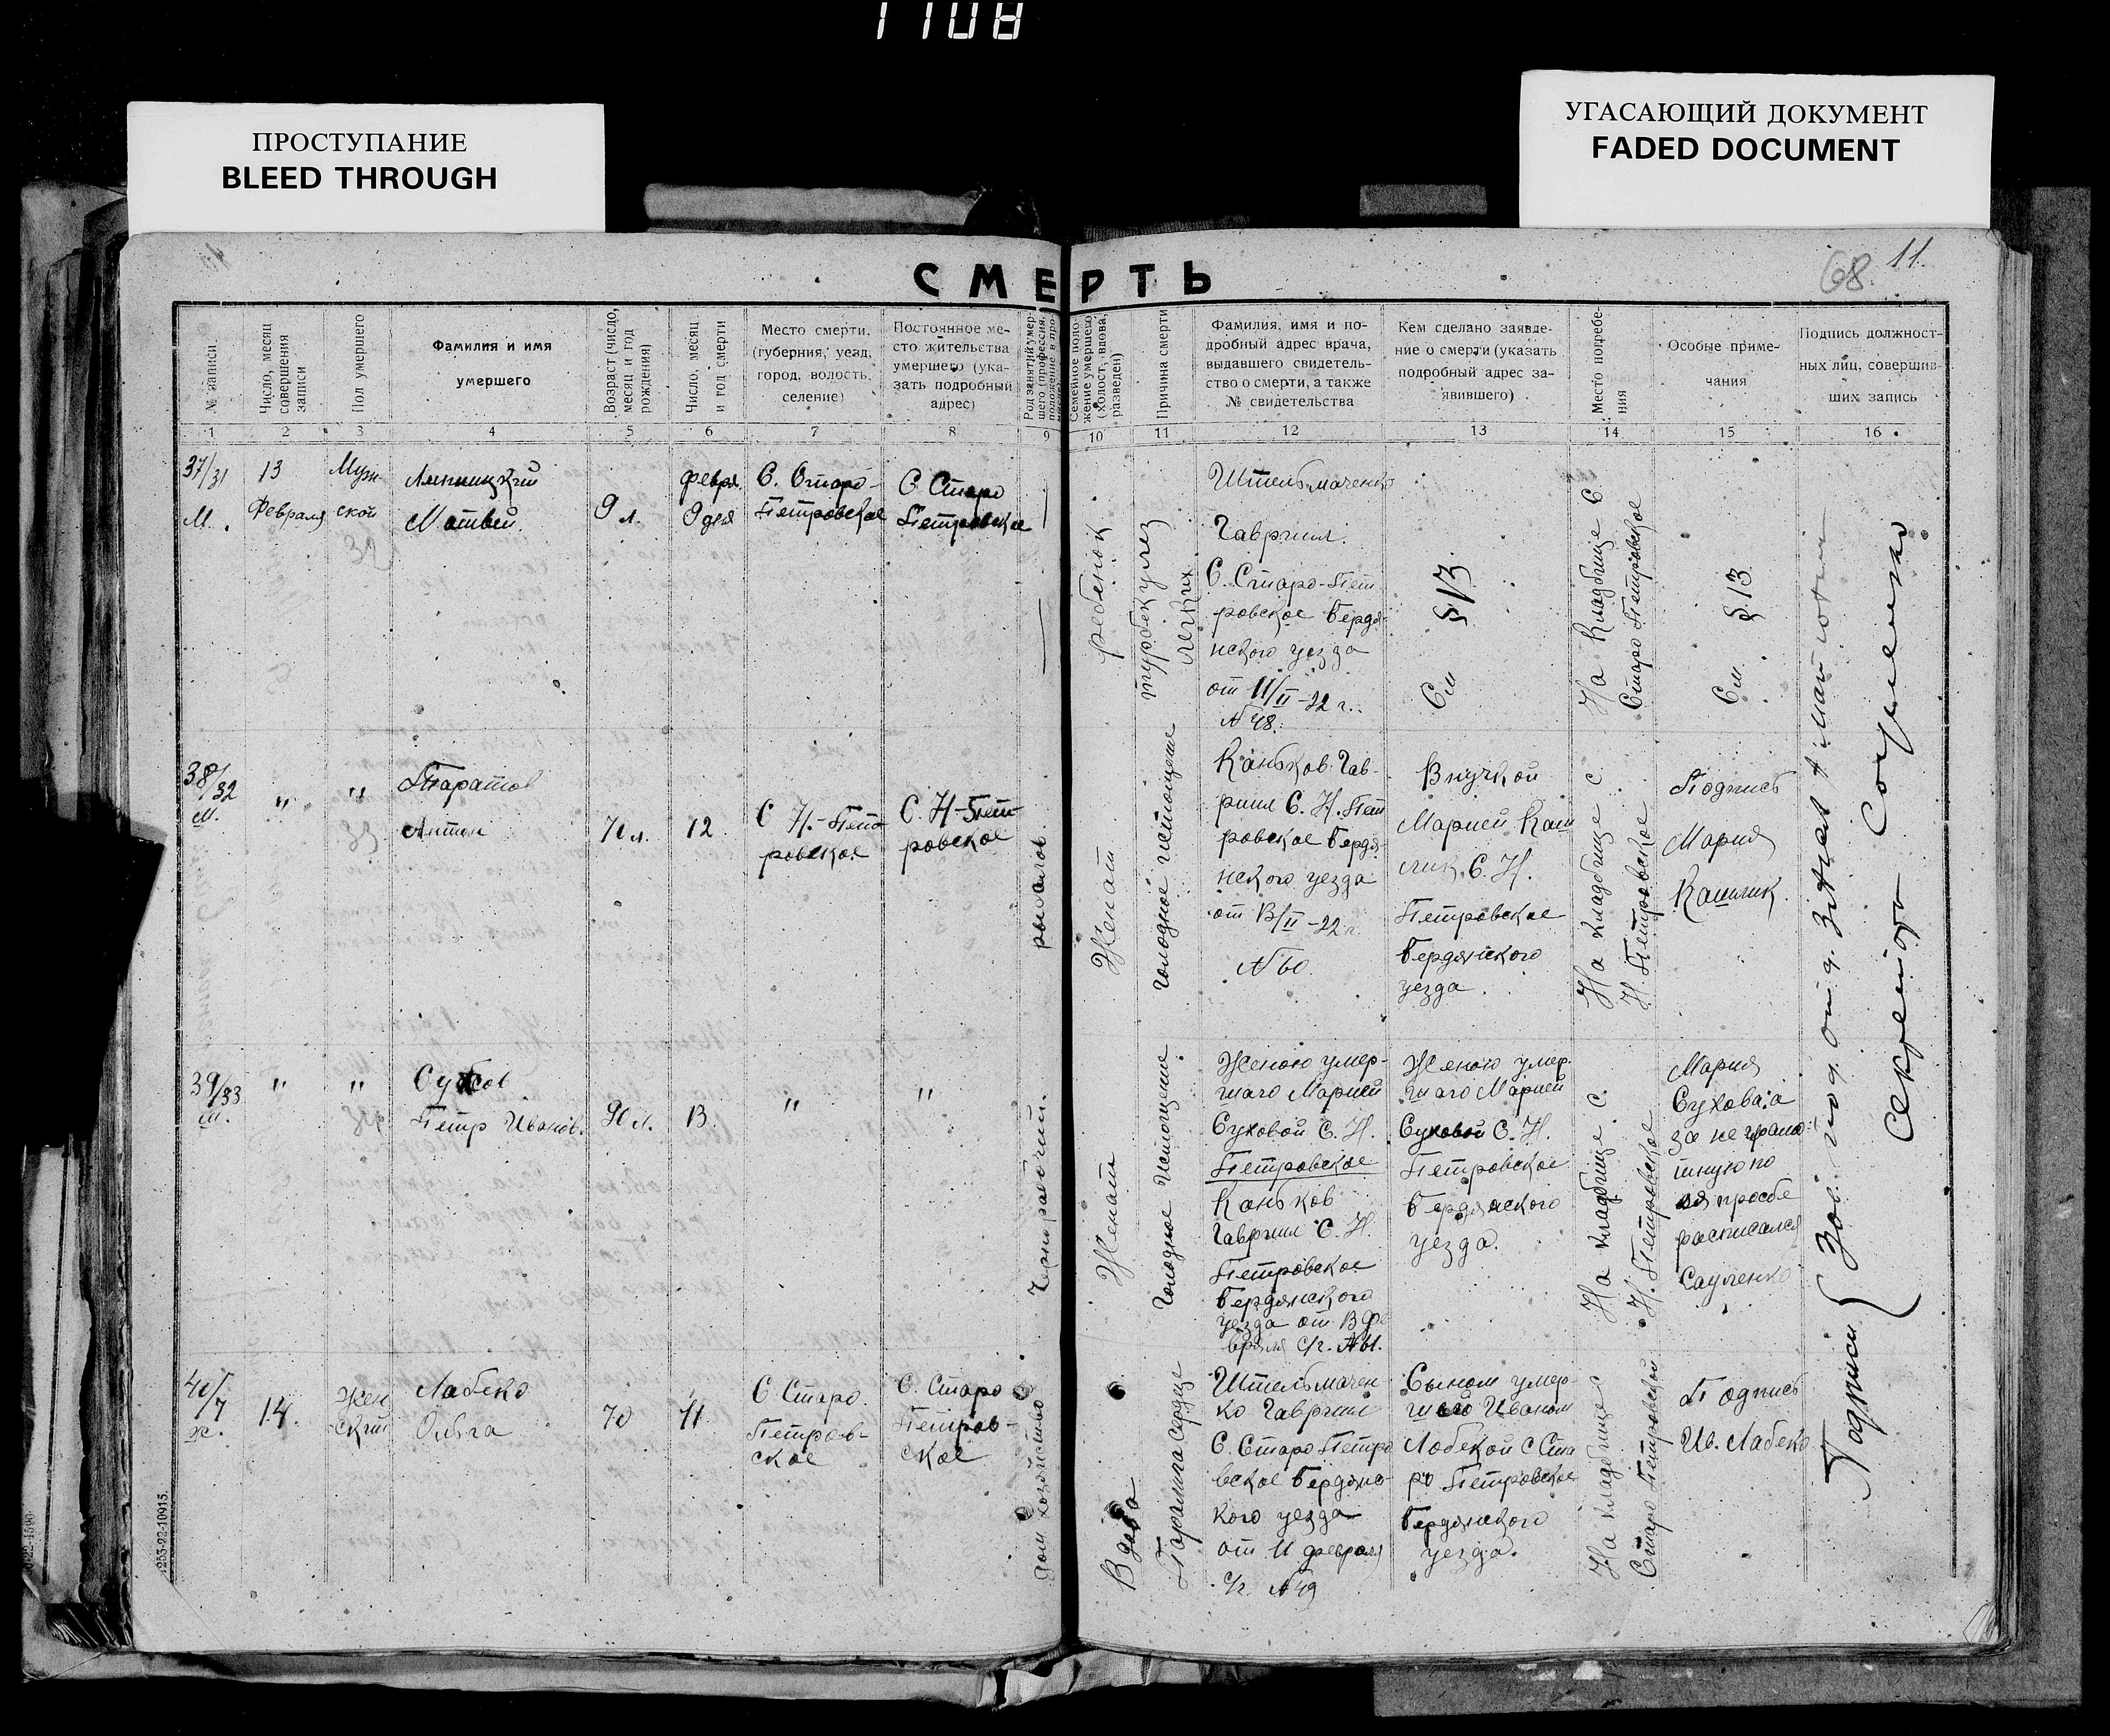 1108
ПРОСТУПАНИЕ
BLEED THROUGH
УГАСАЮЩИЙ ДОКУМЕНТ
FADED DOCUMENT
68 11.
СМЕРТЬ
№ записи
Число, месяц
совершения
записи
Пол умершего
Фамилия и имя
умершего
Возраст (число,
месяц и год
рождения)
Число, месяц
и год смерти
Место смерти,
(губерния, уезд,
город, волость,
селение)
Постоянное ме-
сто жительства
умершего (ука-
зать подробный
адрес)
Род занятий умер-
шего (профессия,
положение в про-
Семейное поло-
жение умершего
(холост, вдова,
разведен)
Причина смерти
Фамилия, имя и по-
дробный адрес врача,
выдавшего свидетель-
ство о смерти, а также
№ свидетельства
Кем сделано заявле-
ние о смерти (указать
подробный адрес за-
явившего)
Место погребе-
ния
Особые приме-
чания
Подпись должност-
ных лиц, совершив-
ших запись
1 2 3 4 5 6 7 8 9 10 11 12 13 14 15 16
37/31
М.
13
Февраля
Муж-
ской
Матвей.
9 л.
февра.
9 дня
С. Старо-
Петровское
С. Старо
Петровское
ребенок
туберкулез
легких
Штельмаченко
Гавриил.
С. Старо-Пет
ровское Бердя-
нского уезда
от 11/II-22 г.
№ 48.
См §13
На кладбище С
Старо Петровское
См. §13
38/32
М.
"
"
Таратов
Антон
70 л.
12
С Н.-Пет
ровское
С. Н-Пет
ровское
рыболов.
Женат
голодное истощение
Каньков Гав-
риил С. Н. Пет
ровское Бердя-
нского уезда
от 13/II-22 г.
№ 60.
Внучкой
Марией Каш
лик С. Н.
Петровское
Бердянского
уезда.
На кладбище С
Н. Петровское
Подпись
Мария
Кашлик.
39/33
М.
"
"
Сухов
Петр Иванов.
90 л.
13.
"
"
Чернорабочий.
Женат
Голодное Истощение.
Женою умер-
шаго Марией
Суховой С. Н.
Петровское
Каньков
Гавриил С. Н.
Петровское
Бердянского
уезда от 13 Фе
враля с/г. № 61.
Женою умер-
шаго Марией
Суховой С. Н.
Петровское
Бердянского
уезда.
На кладбище С.
Н. Петровское
Мария
Сухова, а
за не грамо-
тную по
ея просбе
расписался
Саученко
40/7
ж.
14.
Жен
ский
Лабеко
Ольга
70
11
С. Старо.
Петров-
ское
С. Старо
Петров-
ское
дом. хозяйство
Вдова
Паралич сердце
Штельмачен
ко Гавриил
С. Старо Петро
вское Бердянс-
кого уезда
от 11 февраля
с/г. № 49
Сыном умер-
шего Иваном
Лабекой С Ста
ро Петровское
Бердянского
уезда.
На кладбище С
Старо Петровской
Подпись
Ив. Лабеко
Подписи
Секретарь
255-22-10915.